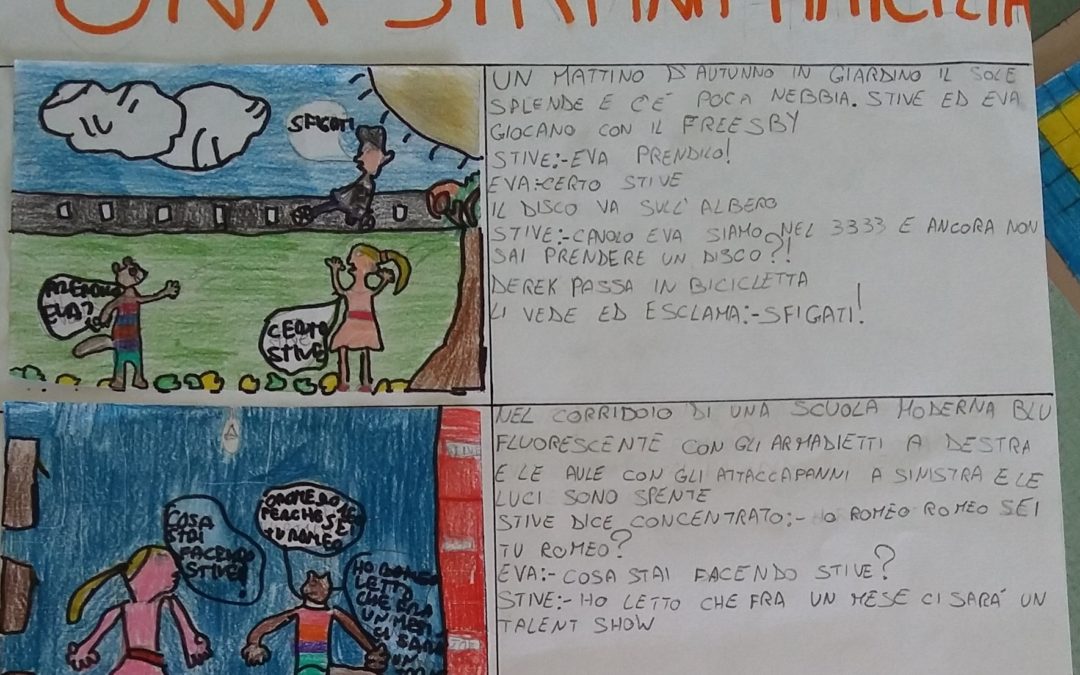 UNA STRANA AMICIZIA
SFIGATI
EVA?
CERTO
STIVE
UN MATTINO D'AUTUNNO IN GIARDINO IL SOLE
SPLENDE E C'È POCA NEBBIA. STIVE ED EVA
GIOCANO CON IL FREESBY
STIVE:-EVA PRENDILO!
EVA:-CERTO STIVE
IL DISCO VA SULL'ALBERO
STIVE:-CAVOLO EVA SIAMO NEL 3333 E ANCORA NON
SAI PRENDERE UN DISCO?!
DEREK PASSA IN BICICLETTA
LI VEDE ED ESCLAMA:-SFIGATI!
COSA
STAI
FACENDO
STIVE?
O ROMEO
PERCHÈ SEI
TU ROMEO
HO
LETTO
CHE FRA
UN MESE
CI SARÀ
UN
NEL CORRIDOIO DI UNA SCUOLA MODERNA BLU
FLUORESCENTE CON GLI ARMADIETTI A DESTRA
E LE AULE CON GLI ATTACCAPANNI A SINISTRA E LE
LUCI SONO SPENTE
STIVE DICE CONCENTRATO:- HO ROMEO ROMEO SEI
TU ROMEO?
EVA:- COSA STAI FACENDO STIVE?
STIVE:- HO LETTO CHE FRA UN MESE CI SARÁ UN
TALENT SHOW